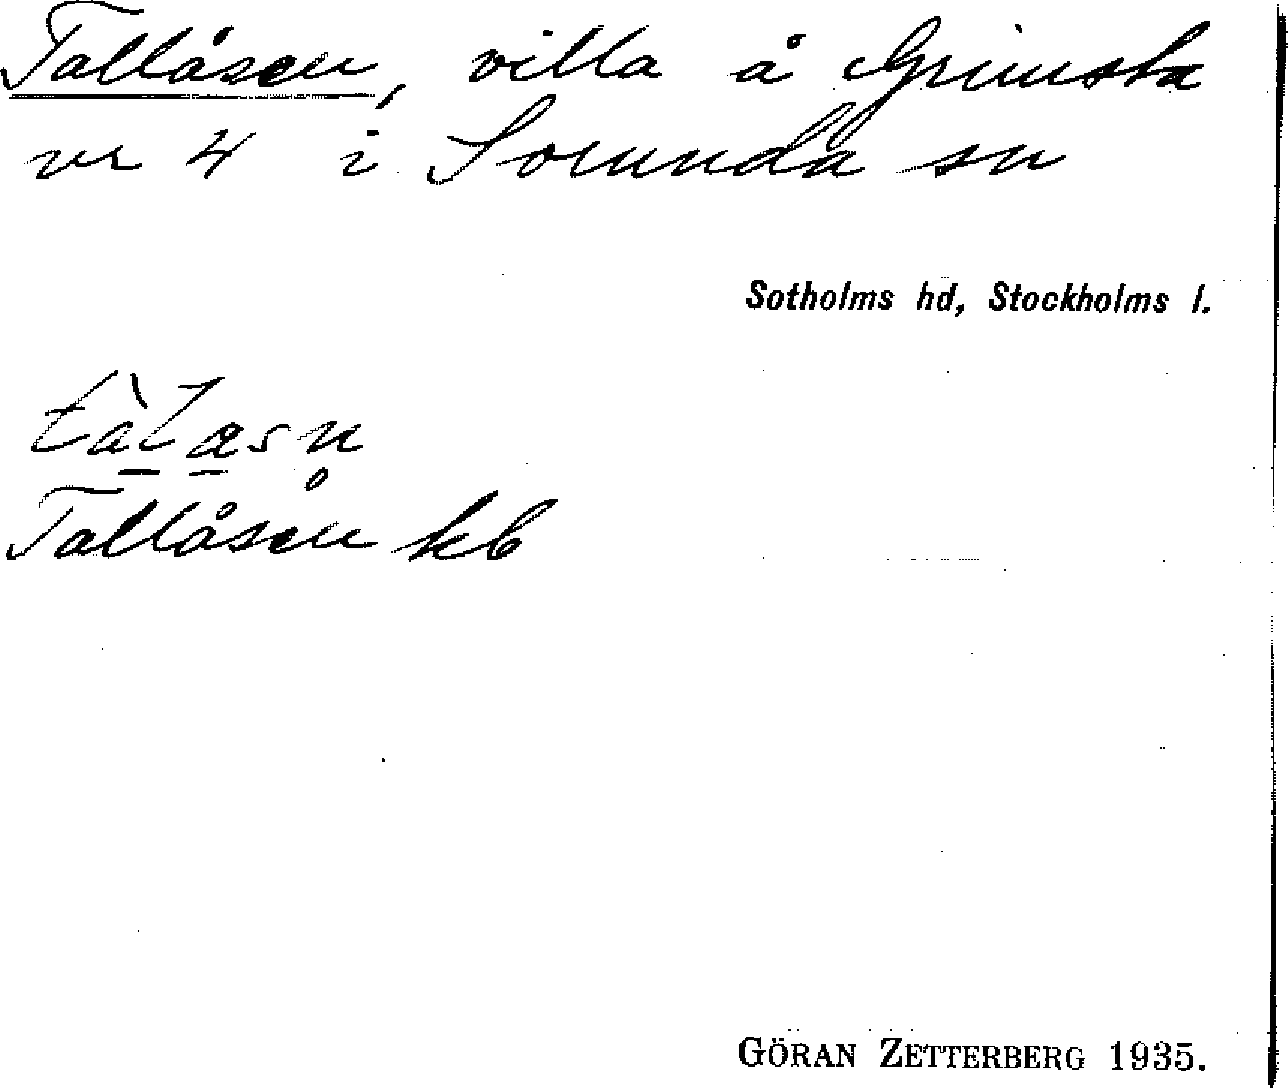 Tallåsen, villa å Grimsta
nr 4 i Sorunda sn
Sotholms hd, Stockholms l.
Tallåsen kb
GÖRAN ZETTERBERG 1935.